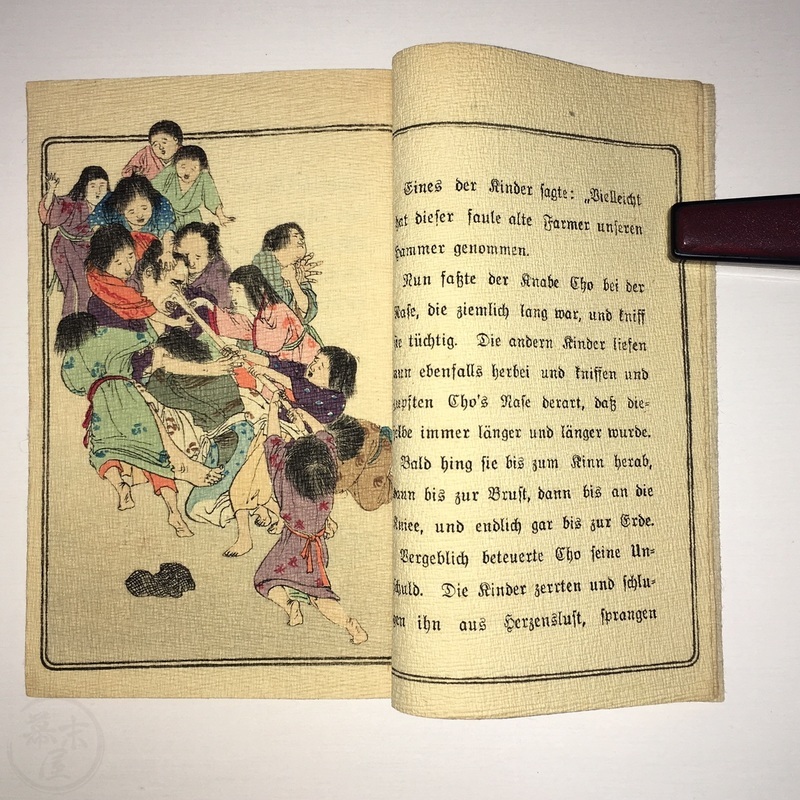 Eines der Kinder sagte: „Vielleicht
hat dieser faule alte Farmer unseren
Hammer genommen.
Nun faßte der Knabe Cho bei der
Nase, die ziemlich lang war, und kniff
sie tüchtig. Die andern Kinder liefen
nun ebenfalls herbei und kniffen und
zupften Cho's Nase derart, daß die=
selbe immer länger und länger wurde.
Bald hing sie bis zum Kinn herab,
dann bis zur Brust, dann bis an die
Kniee, und endlich gar bis zur Erde.
Vergeblich beteuerte Cho seine Un=
schuld. Die Kinder zerrten und schlu=
gen ihn aus Herzenslust, sprangen
幕末屋